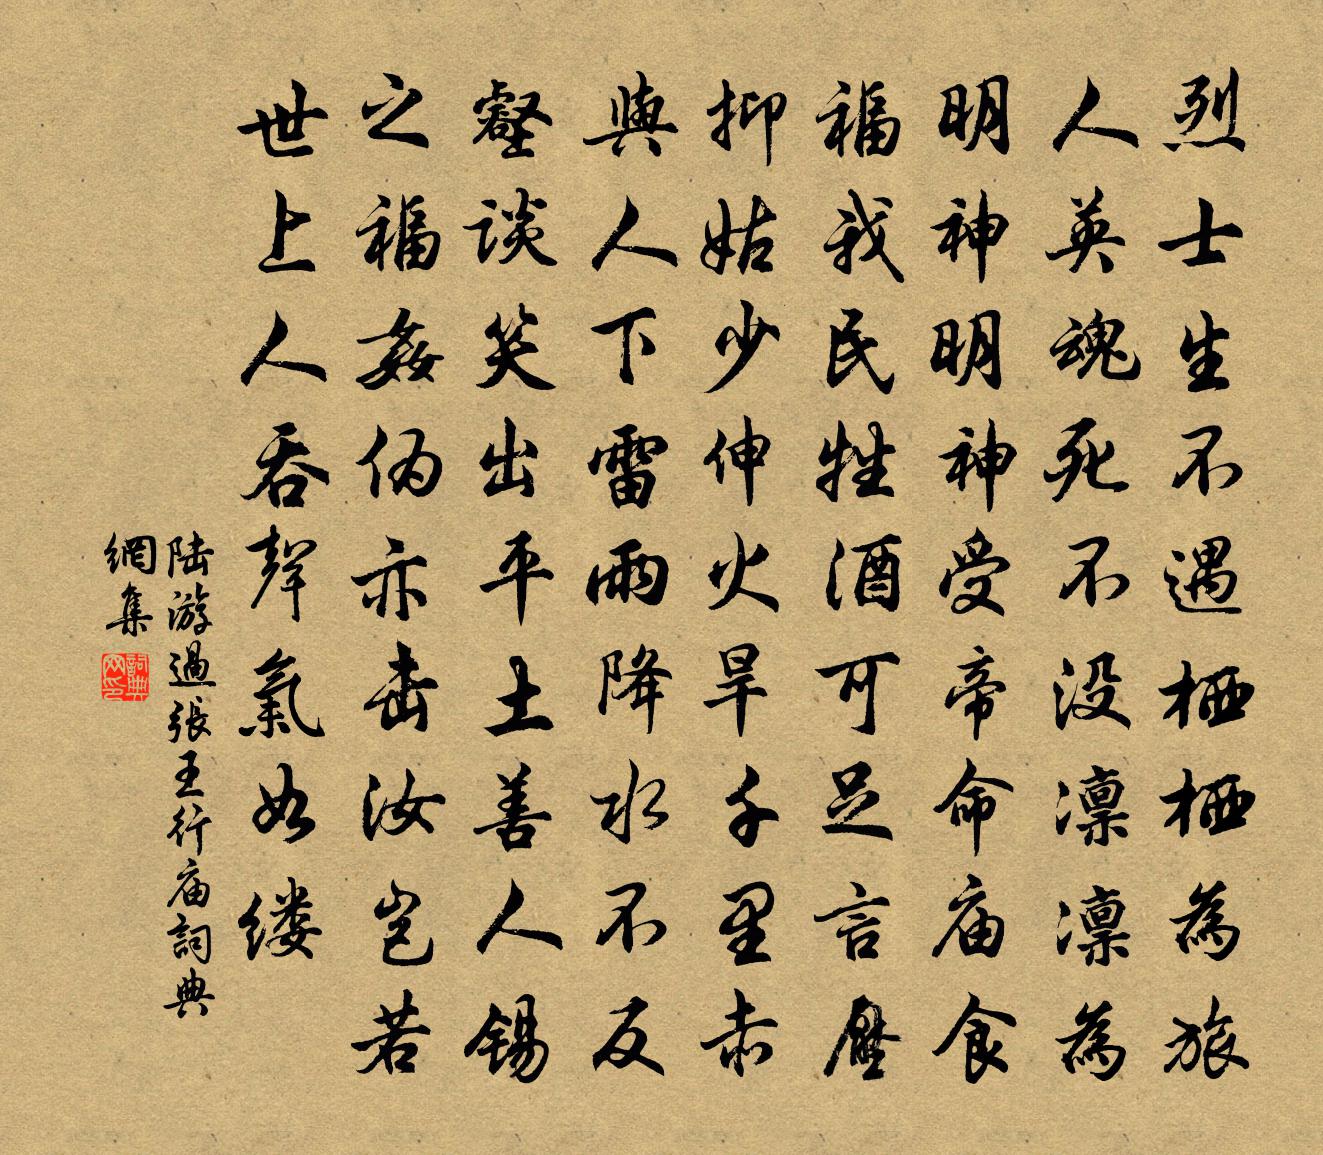 烈士生不遇栖栖為旅
人英魂死不没凛凛為
明神明神受帝命庙食
福我民牲酒可足言壓
抑姑少伸火旱千里赤
與人下雷雨降水不反
壑談笑出平土善人锡
之福姦伪亦击汝岂若
世上人吞聲氣如缕
陆游過張王行庙詞典
網集
詞典网印